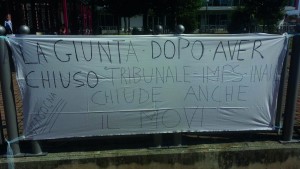 LA GIUNTA DOPO AVER
CHIUSO TRIBUNALE-IMPS-INAIL
CHIUDE ANCHE
IL MOVI